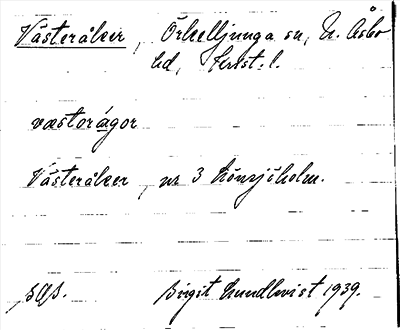 Västeråker, Örkelljunga sn, N. Åsbo
hd, Krist. l.
væstorágor
Västeråker, nr 3 Lönsjöholm.
Birgit Lundkvist 1939.